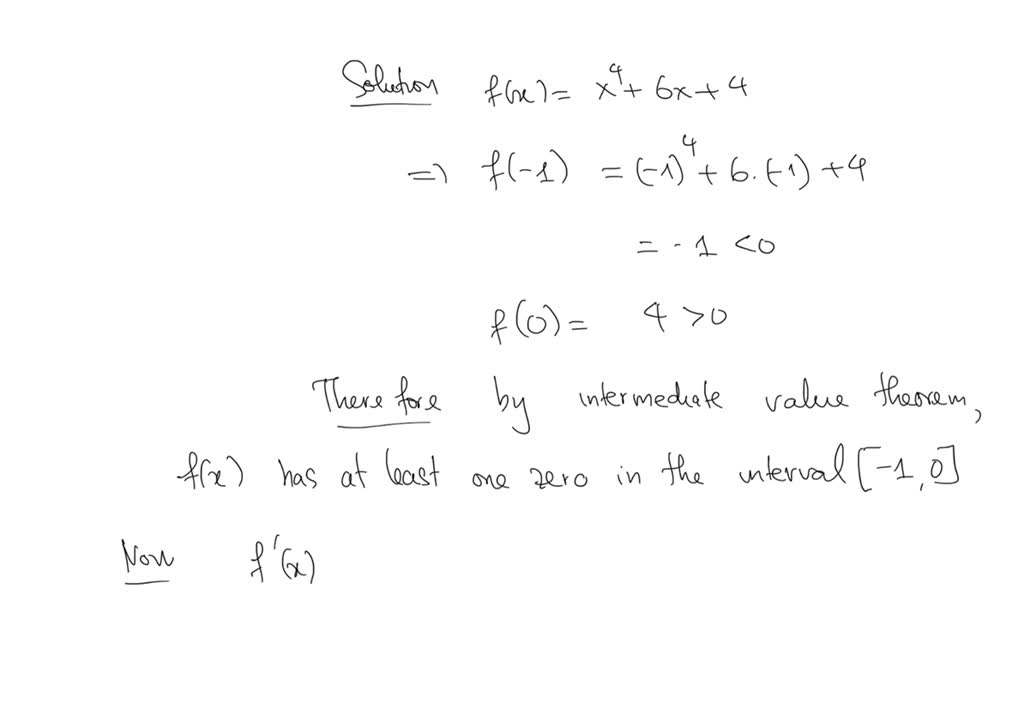 Solution f(x) = x⁴ + 6x + 4
=> f(-1) = (-1)⁴ + 6.(-1) + 4
= -1 < 0
f(0) = 4 > 0
Therefore by intermediate value theorem,
f(x) has at least one zero in the interval [-1, 0]
Now f'(x)